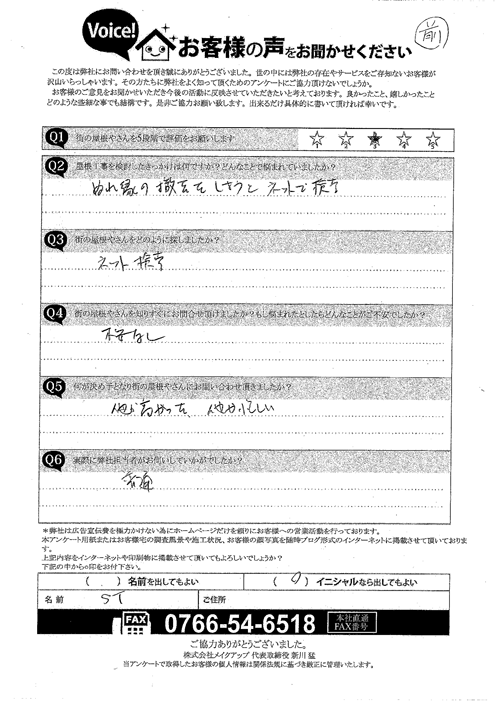 前
Voice!
お客様の声をお聞かせください
この度は弊社にお問い合わせを頂き誠にありがとうございます。世の中には弊社の存在やサービスをご存知ないお客様が
沢山いらっしゃいます。その方たちに弊社をよく知って頂くためのアンケートにご協力頂けないでしょうか。
お客様のご意見をお聞かせいただき今後の活動に反映させていただきたいと考えております。良かったこと、嬉しかったこと
どのような些細な事でも結構です。是非ご協力お願い致します。出来るだけ具体的に書いて頂ければ幸いです。
Q1 街の屋根やさんを5段階で評価をお願いします
1 2 3 4 5
Q2 屋根工事を検討したきっかけは何ですか?どんなことで悩まれていましたか?
ぬれ縁の撤去をしようとネットで検索
Q3 街の屋根やさんをどのように探しましたか?
ネット検索
Q4 街の屋根やさんを知りすぐにお問合せ頂けましたか?もし悩まれたとしたらどんなことがご不安でしたか?
不安なし
Q5 何が決め手となり街の屋根やさんにお問い合わせ頂きましたか?
Q6 実際に弊社担当者がお伺いしていかがでしたか?
普通
*弊社は広告宣伝費を極力かけない為にホームページだけを頼りにお客様への営業活動を行っております。
本アンケート用紙またはお客様宅の調査風景や施工状況、お客様の顔写真を随時ブログ形式のインターネットに掲載させて頂いておりま
す。
上記内容をインターネットや印刷物に掲載させて頂いてもよろしいでしょうか?
下記の中から○印をお付下さい。
( ) 名前を出してもよい ( ○ ) イニシャルなら出してもよい
名 前 ST ご住所
FAX 0766-54-6518 本社直通 FAX番号
ご協力ありがとうございました。
株式会社メイクアップ 代表取締役 新川 猛
当アンケートで取得したお客様の個人情報は関係法規に基づき厳正に管理いたします。